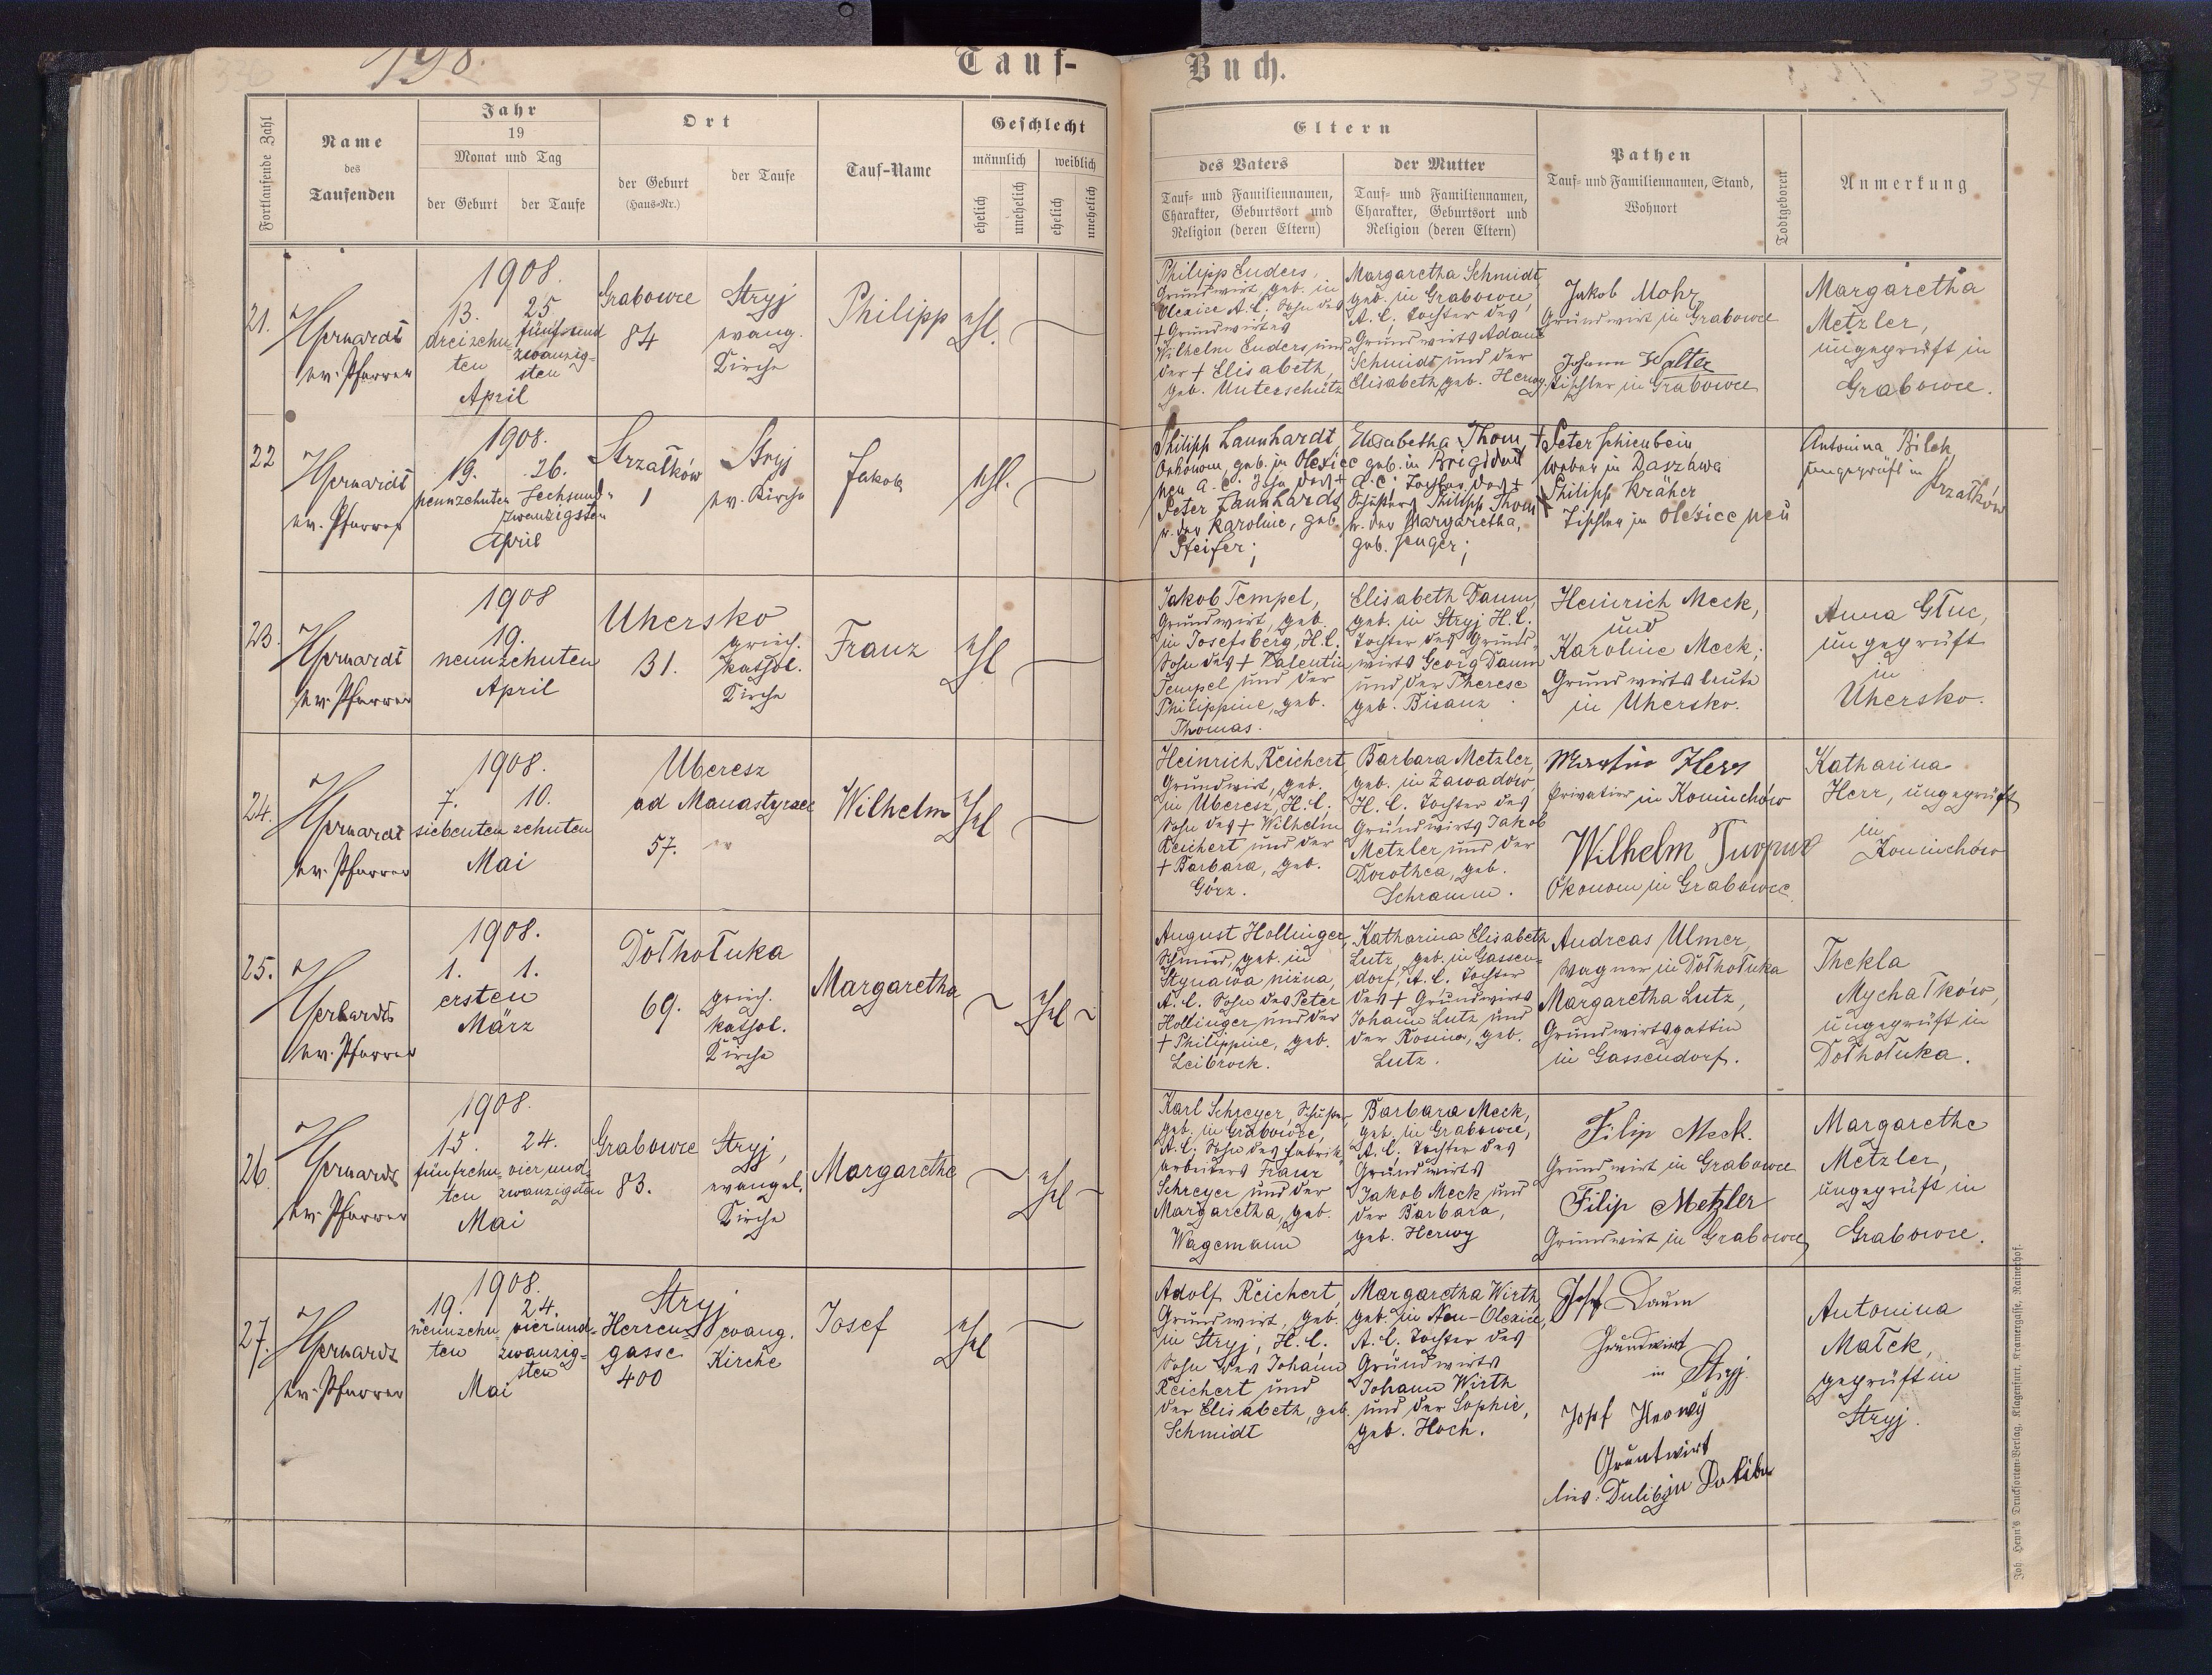 198.
Tauf-
Buch.
336
337
Fortlaufende Zahl
Name
des
Taufenden
Jahr
19
Monat und Tag
der Geburt
der Taufe
Ort
der Geburt
(Haus-Nr.)
der Taufe
Tauf-Name
Geschlecht
männlich
weiblich
ehelich
unehelich
ehelich
unehelich
Eltern
des Vaters
Tauf- und Familiennamen,
Charakter, Geburtsort und
Religion (deren Eltern)
der Mutter
Tauf- und Familiennamen,
Charakter, Geburtsort und
Religion (deren Eltern)
Pathen
Tauf- und Familiennamen, Stand,
Wohnort
Todtgeboren
Anmerkung
21.
ev. Pfarrer
1908.
13. 25.
dreizehn- fünfund
ten zwanzig-
sten
April
Grabowce
84
Stryj
evang.
Kirche
Philipp
ehl.
Philipp Enders,
Grundwirt, geb. in
Olexice A.C., Sohn des
+ Grundwirtes
Wilhelm Enders und
der + Elisabeth,
geb. Unterschütz
Margaretha Schmidt
geb. in Grabowce,
A.C. Tochter des
Grundwirts Adam
Schmidt und der
Elisabeth, geb. Herwy.
Jakob Mohr
Grundwirt in Grabowce
Johann Walter
Tischler in Grabowce
Margaretha
Metzler,
ungeprüft in
Grabowce.
22
ev. Pfarrer
1908.
19. 26.
neunzehnten Sechsund-
zwanzigsten
April
Strzałków
1
Stryj
ev. Kirche
Jakob
ehl.
Philipp Launhardt
Oekonom, geb. in Olexice
neu A.C. Sohn des +
Peter Launhardt
u. der Karoline, geb.
Pfeifer;
Elisabetha Thom,
geb. in Brigidau
A.C. Tochter des +
Schusters Philipp Thom
u. der Margaretha,
geb. Jenger;
+ Peter Schienbein
Weber in Daszawa
Philipp Kräher
Tischler in Olexice neu
Antonina Bilek
ungeprüft in
Strzałków
23.
ev. Pfarrer
1908
19.
neunzehnten
April
Uhersko
31.
griech.
kathol.
Kirche
Franz
ehl
Jakob Tempel,
Grundwirt, geb.
in Josefsberg, H.C.
Sohn des + Valentin
Tempel und der
Philippine, geb.
Thomas.
Elisabeth Daum,
geb. in Stryj H.C.
Tochter des Grund-
wirts Georg Daum
und der Therese
geb. Bisanz.
Heinrich Meck,
und
Karoline Meck;
Grundwirtsleute
in Uhersko.
Anna Głuc,
ungeprüft
in
Uhersko.
24.
ev. Pfarrer
1908.
7. 10.
siebenten zehnten
Mai
Uberesz
ad Manasterzec
57.
Wilhelm
ehl
Heinrich Reichert
Grundwirt, geb.
in Uberesz, H.C.
Sohn des + Wilhelm
Reichert und der
+ Barbara, geb.
Görz.
Barbara Metzler,
geb. in Zawadow,
H.C. Tochter des
Grundwirts Jakob
Metzler und der
Dorothea, geb.
Schramm.
Martin Herr
Privatier in Koniuchów
Wilhelm
Ökonom in Grabowce
Katharina
Herr, ungeprüft
in
Koniuchów
25.
ev. Pfarrer
1908.
1. 1.
ersten
März
Dołhołuka
69.
griech.
kathol.
Kirche
Margaretha
ehl
August Hollinger,
Schmied, geb. in
Stynawa niżna,
A.C. Sohn des Peter
Hollinger und der
+ Philippine, geb.
Leibrock.
Katharina Elisabeth
Lutz, geb. in Gassen-
dorf, A.C. Tochter
des + Grundwirts
Johann Lutz und
der Rosina, geb.
Lutz.
Andreas Ulmer,
Wagner in Dołhołuka
Margaretha Lutz,
Grundwirtsgattin
in Gassendorf.
Thekla
Mychałków,
ungeprüft in
Dołhołuka.
26
ev. Pfarrer
1908.
15. 24.
fünfzehn- vierund-
ten zwanzigsten
Mai
Grabowce
83.
Stryj,
evangel.
Kirche
Margarethe
ehl
Karl Schreyer, Schuster,
geb. in Grabowce,
A.C. Sohn des Fabrik-
arbeiters Franz
Schreyer und der
Margaretha, geb.
Wagemann
Barbara Meck,
geb. in Grabowce,
A.C. Tochter des
Grundwirts
Jakob Meck und
der Barbara,
geb. Herwy
Filip Meck.
Grundwirt in Grabowce
Filip Metzler
Grundwirt in Grabowce
Margarethe
Metzler,
ungeprüft in
Grabowce.
27.
ev. Pfarrer
1908.
19. 24.
neunzehn- vierund-
ten zwanzig-
sten
Mai
Stryj
Herren-
gasse
400
evang.
Kirche
Josef
ehl
Adolf Reichert,
Grundwirt, geb.
in Stryj, H.C.
Sohn des Johann
Reichert und
der Elisabeth, geb.
Schmidt
Margaretha Wirth,
geb. in Neu-Olexice,
A.C. Tochter des
Grundwirts
Johann Wirth
und der Sophie,
geb. Hoch.
Josef Daum
Grundwirt
in Stryj.
Josef Herwy
Gruntwirt
Antonina
Małek,
geprüft in
Stryj.
Joh. Heyn's Drucksorten-Verlag, Klagenfurt, Kramergasse, Rainerhof.